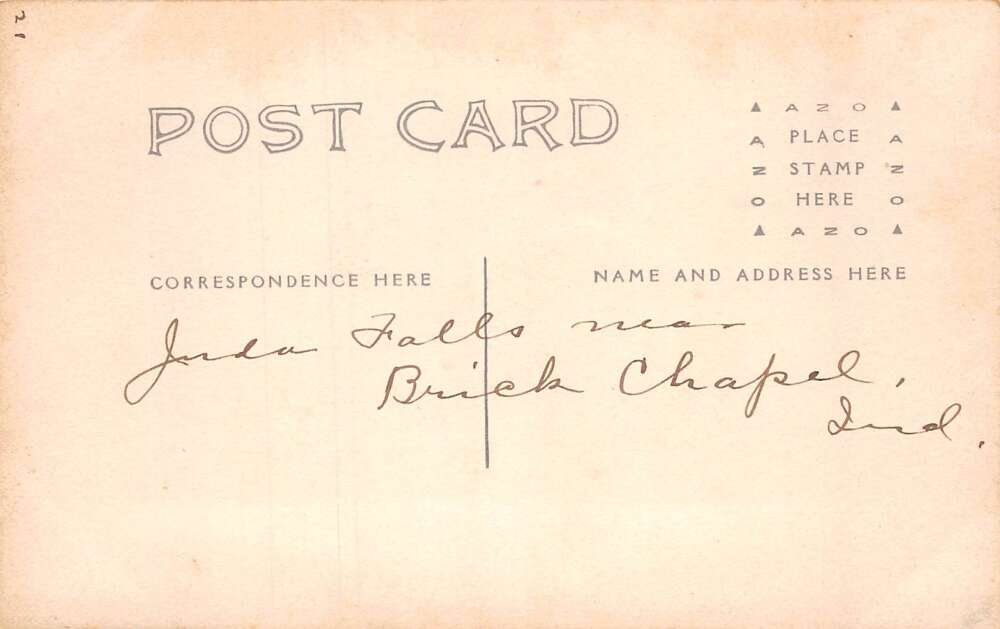 21
POST CARD
▲ A Z O ▲
A PLACE A
Z STAMP Z
O HERE O
▲ A Z O ▲
CORRESPONDENCE HERE
NAME AND ADDRESS HERE
Juda Falls near
Brick Chapel,
Ind.